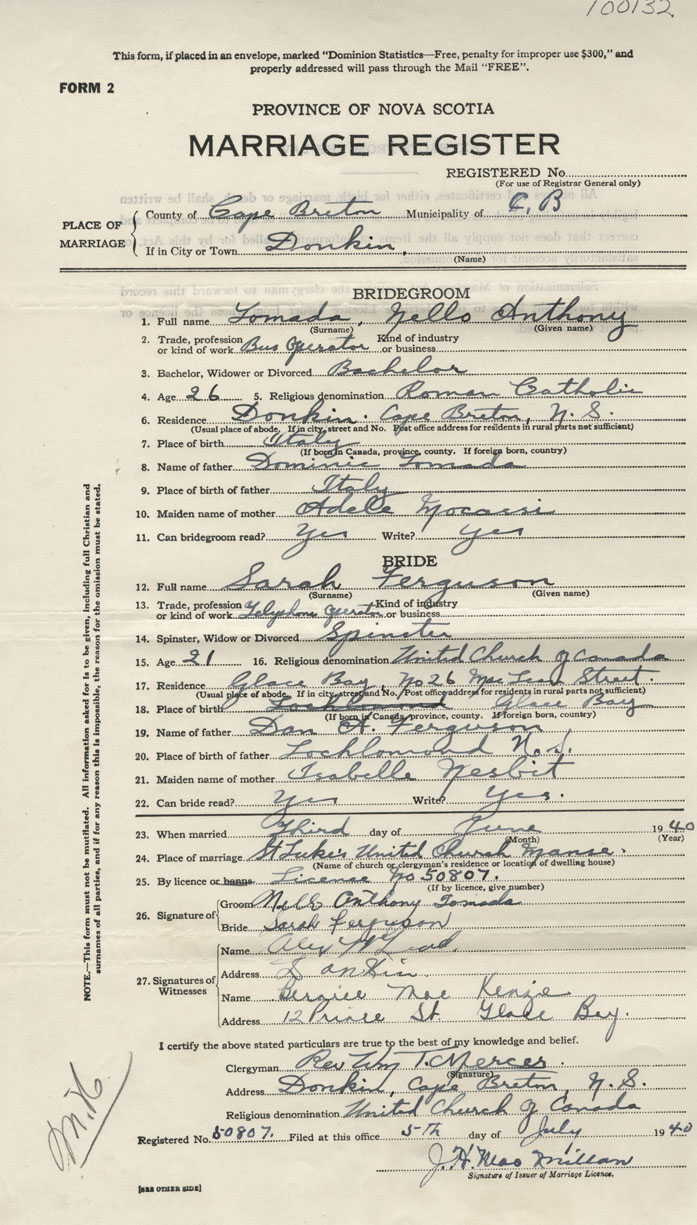 100132
This form, if placed in an envelope, marked "Dominion Statistics—Free, penalty for improper use $300," and
properly addressed will pass through the Mail "FREE".
FORM 2
PROVINCE OF NOVA SCOTIA
MARRIAGE REGISTER
REGISTERED No.
(For use of Registrar General only)
PLACE OF MARRIAGE
County of Cape Breton Municipality of C. B
If in City or Town Donkin,
(Name)
BRIDEGROOM
1. Full name Tomada, Nello Anthony
(Surname) (Given name)
2. Trade, profession or kind of work Bus Operator Kind of industry or business
3. Bachelor, Widower or Divorced Bachelor
4. Age 26 5. Religious denomination Roman Catholic
6. Residence Donkin. Cape Breton, N. S.
(Usual place of abode. If in city, street and No. Post office address for residents in rural parts not sufficient)
7. Place of birth Italy
(If born in Canada, province, county. If foreign born, country)
8. Name of father Dominic Tomada
9. Place of birth of father Italy
10. Maiden name of mother Adele
11. Can bridegroom read? Yes Write? Yes
BRIDE
12. Full name Sarah Ferguson
(Surname) (Given name)
13. Trade, profession or kind of work Telephone Operator Kind of industry or business
14. Spinster, Widow or Divorced Spinster
15. Age 21 16. Religious denomination United Church of Canada
17. Residence Glace Bay, No 26 MacLean Street.
(Usual place of abode. If in city, street and No. Post office address for residents in rural parts not sufficient)
18. Place of birth Lochlomond Glace Bay
(If born in Canada, province, county. If foreign born, country)
19. Name of father Dan A. Ferguson
20. Place of birth of father Lochlomond N.S.
21. Maiden name of mother Isabelle Nesbit
22. Can bride read? Yes Write? Yes.
23. When married Third day of June 1940
(Month) (Year)
24. Place of marriage St Luke's United Church Manse.
(Name of church or clergyman's residence or location of dwelling house)
25. By licence or banns License No 50807.
(If by licence, give number)
26. Signature of
Groom Nello Anthony Tomada
Bride Sarah Ferguson
27. Signatures of Witnesses
Name Alex McLeod
Address Donkin
Name Bernice Mac Kenzie
Address 12 Prince St. Glace Bay.
I certify the above stated particulars are true to the best of my knowledge and belief.
Clergyman Rev Wm T. Mercer.
(Signature)
Address Donkin, Cape Breton, N. S.
Religious denomination United Church of Canada
Registered No. 50807. Filed at this office 5th day of July 1940
J. H. Mac Millan
Signature of Issuer of Marriage Licence.
[SEE OTHER SIDE]
NOTE.—This form must not be mutilated. All information asked for is to be given, including full Christian and
surnames of all parties, and if for any reason this is impossible, the reason for the omission must be stated.